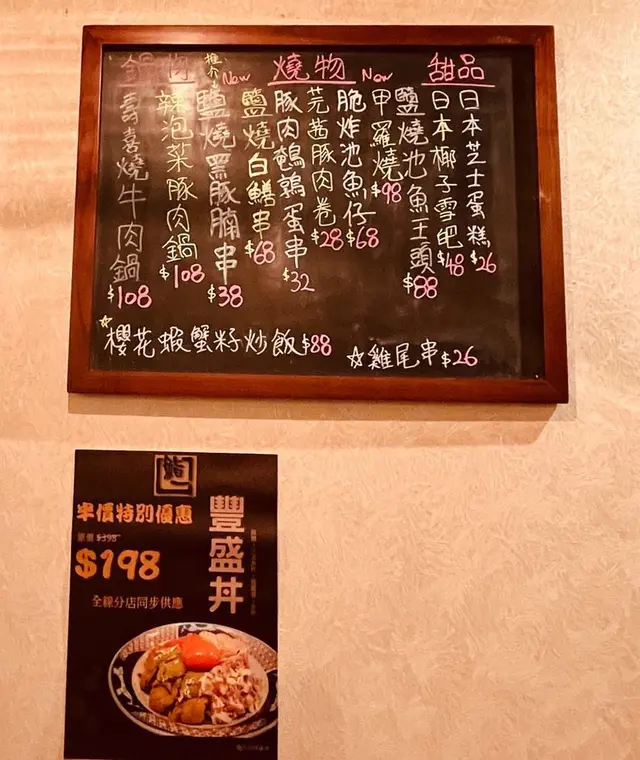 鍋物
壽喜燒牛肉鍋 $108
辣泡菜豚肉鍋 $108
推介
New
燒物
New
鹽燒黑豚腩串 $38
鹽燒白鱔串 $68
豚肉鵪鶉蛋串 $32
芫茜豚肉卷 $28
脆炸池魚仔 $68
甲羅燒 $98
鹽燒池魚王頭 $88
甜品
日本椰子雪吧 $48
日本芝士蛋糕 $26
☆櫻花蝦蟹籽炒飯 $88
☆雞尾串 $26
半價特別優惠
原價 $398
$198
全線分店同步供應
豐盛丼